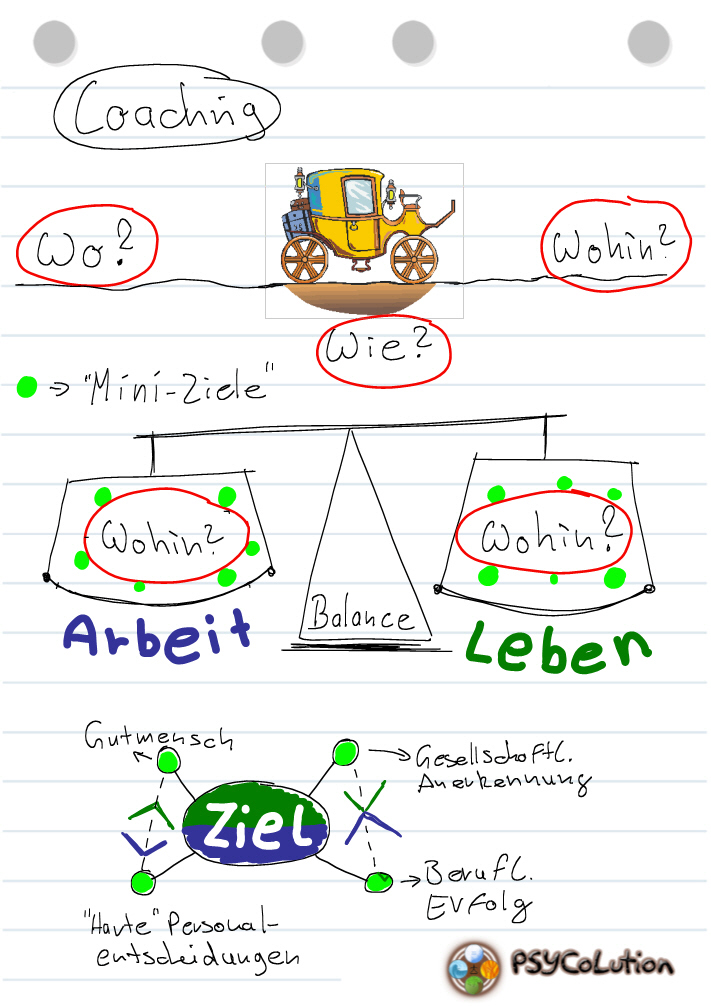 Coaching
Wo?
Wohin?
Wie?
-> "Mini-Ziele"
Wohin?
Wohin?
Balance
Arbeit
Leben
Gutmensch
Gesellschaftl.
Anerkennung
Ziel
Berufl.
Erfolg
"Harte" Personal-
entscheidungen
PSYCoLution